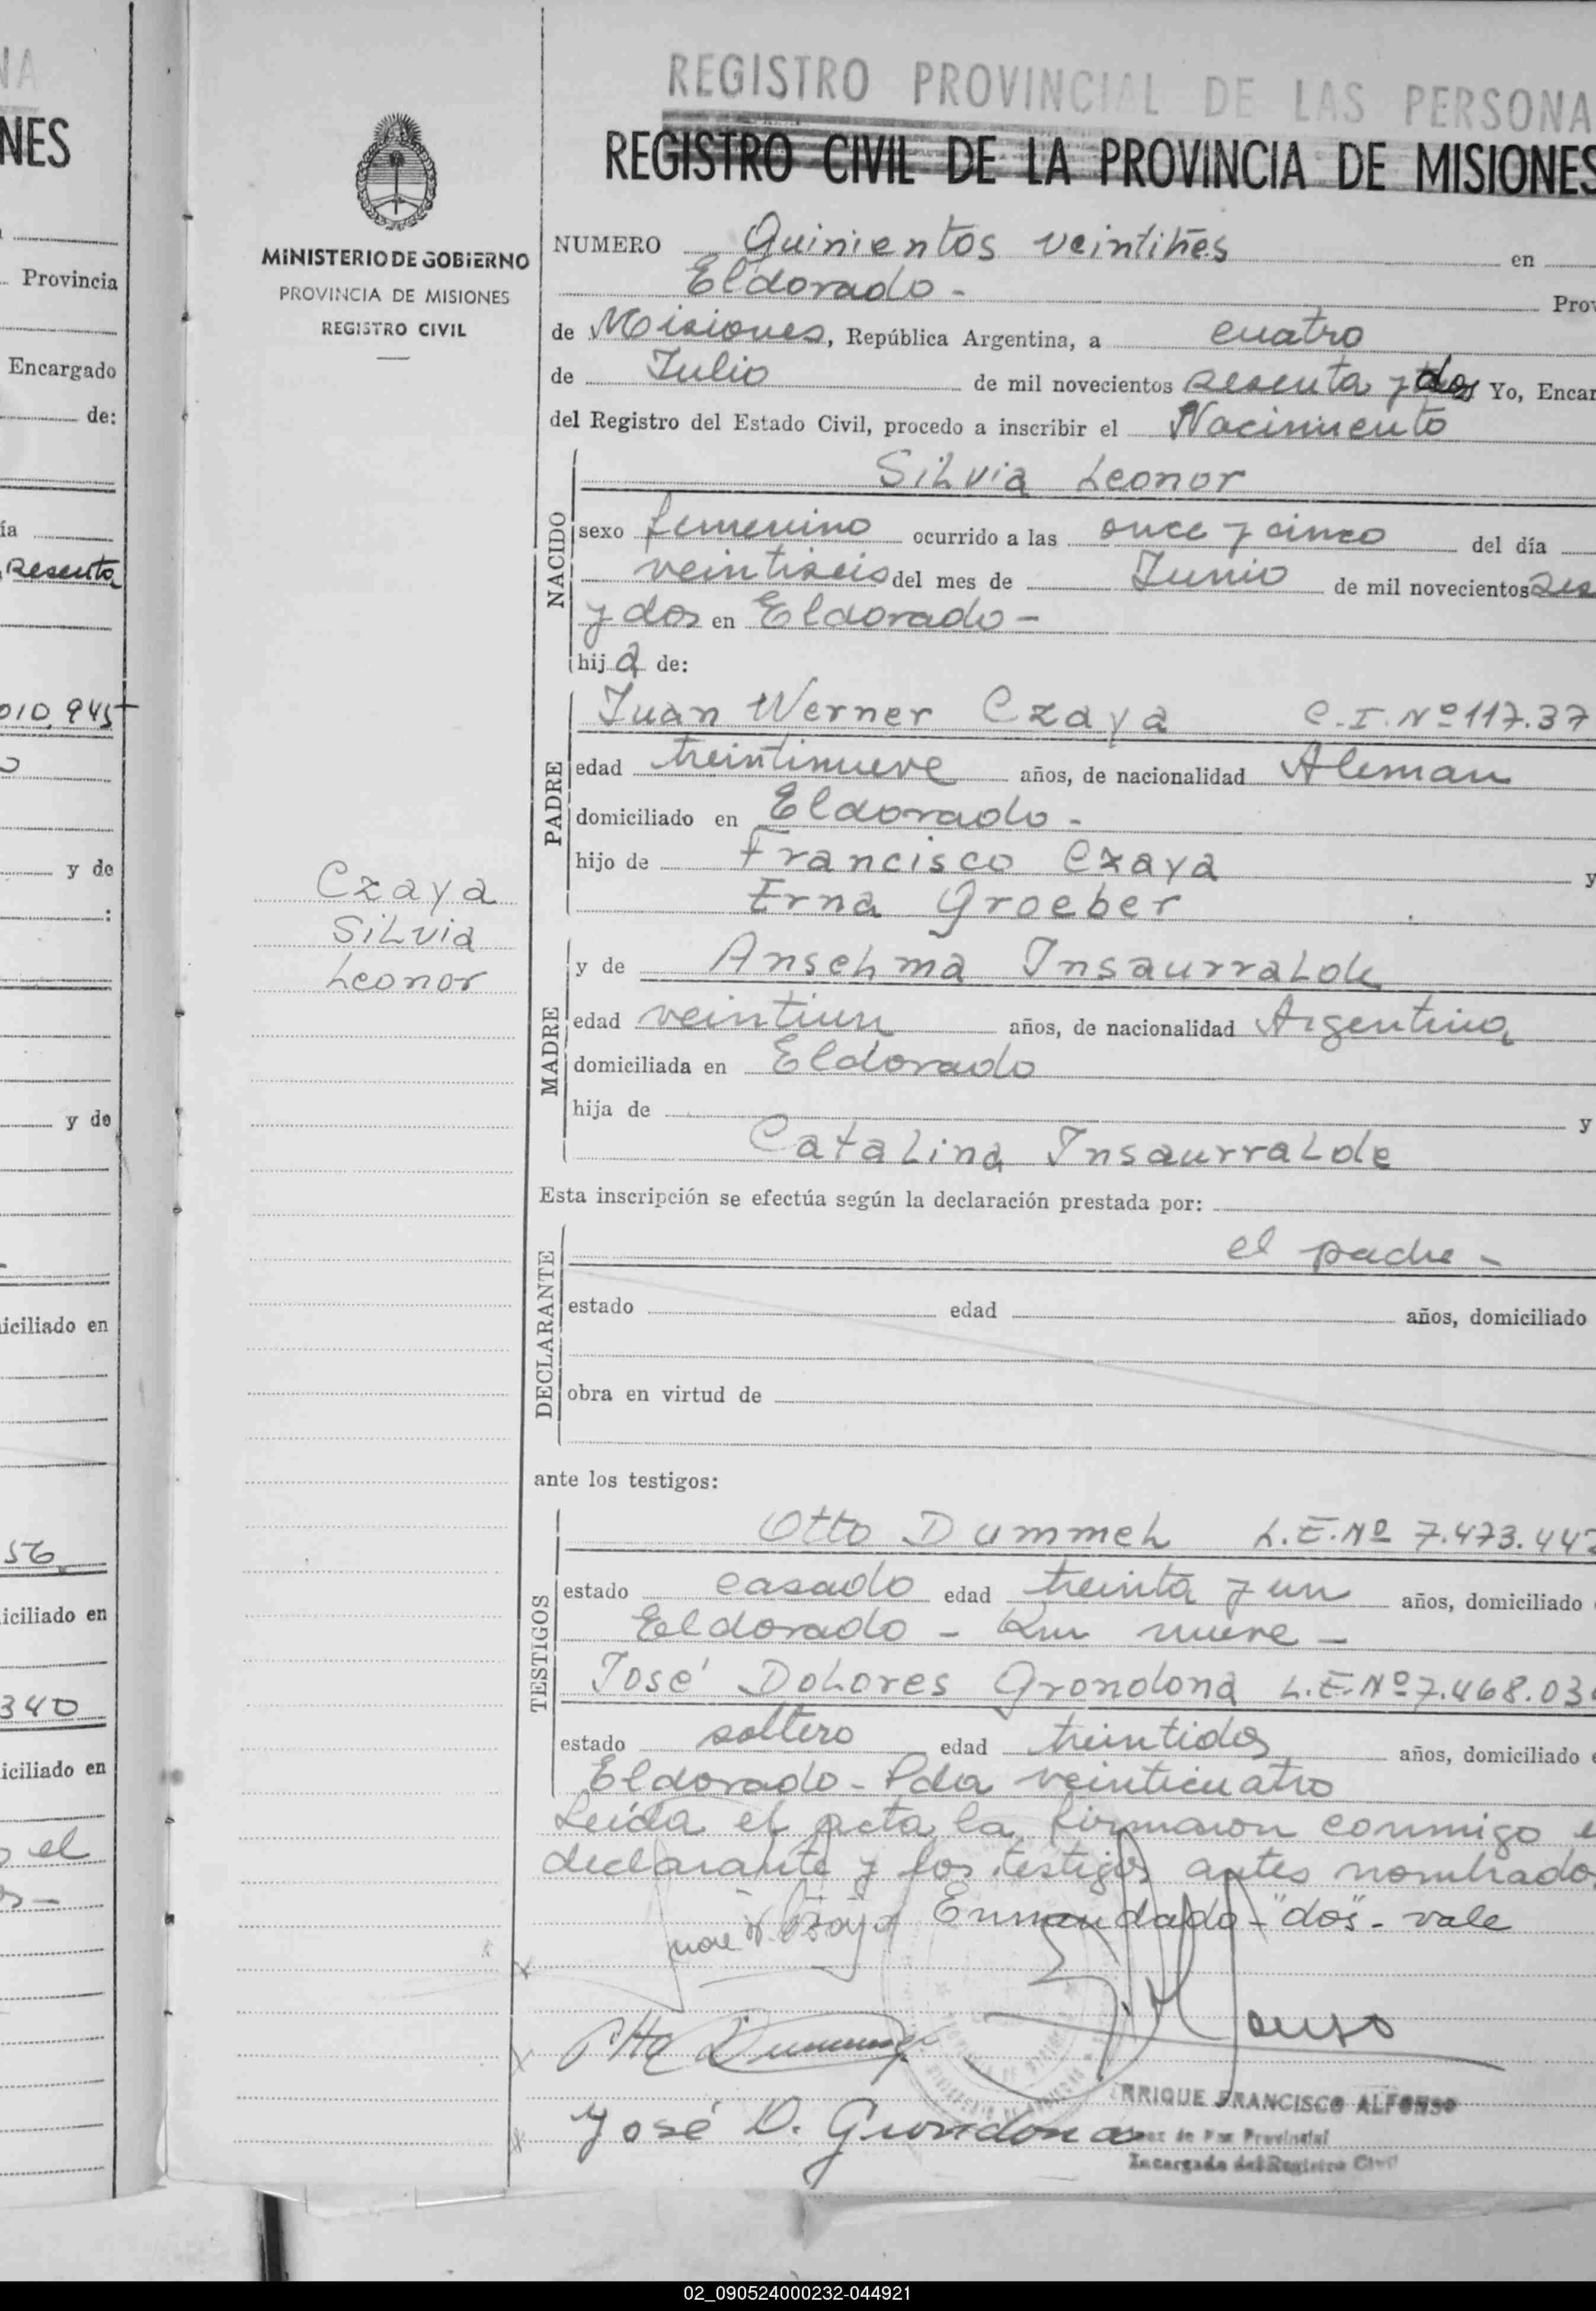 NA
NES
Provincia
Encargado
de:
ía
sesenta
010.945
y de
:
y de
iciliado en
56
iciliado en
340
iciliado en
el
MINISTERIO DE GOBIERNO
PROVINCIA DE MISIONES
REGISTRO CIVIL
Czaya
Silvia
Leonor
REGISTRO PROVINCIAL DE LAS PERSONA
REGISTRO CIVIL DE LA PROVINCIA DE MISIONES
NUMERO Quinientos veintitres en
Eldorado - Prov
de Misiones, República Argentina, a cuatro
de Julio de mil novecientos sesenta y dos Yo, Encar
del Registro del Estado Civil, procedo a inscribir el Nacimiento
NACIDO
Silvia Leonor
sexo femenino ocurrido a las once y cinco del día
veintiseis del mes de Junio de mil novecientos ses
y dos en Eldorado -
hij a de:
PADRE
Juan Werner Czaya C.I. Nº 117.37
edad treintinueve años, de nacionalidad Aleman
domiciliado en Eldorado -
hijo de Francisco Czaya y
Erna Groeber
MADRE
y de Anselma Insaurralde
edad veintiun años, de nacionalidad Argentina
domiciliada en Eldorado
hija de y
Catalina Insaurralde
Esta inscripción se efectúa según la declaración prestada por:
DECLARANTE
el padre -
estado edad años, domiciliado
obra en virtud de
ante los testigos:
TESTIGOS
Otto Dummel L.E. Nº 7.473.442
estado casado edad treinta y un años, domiciliado
Eldorado - Km nueve -
José Dolores Grondona L.E. Nº 7.468.03
estado soltero edad treintidos años, domiciliado e
Eldorado - Pda veinticuatro
Leída el acta la firmaron conmigo e
declarante y los testigos antes nombrados
Enmendado - "dos" - vale
José D. Grondona
ENRIQUE FRANCISCO ALFONSO
Juez de Paz Provincial
Encargado del Registro Civil
02_090524000232-044921